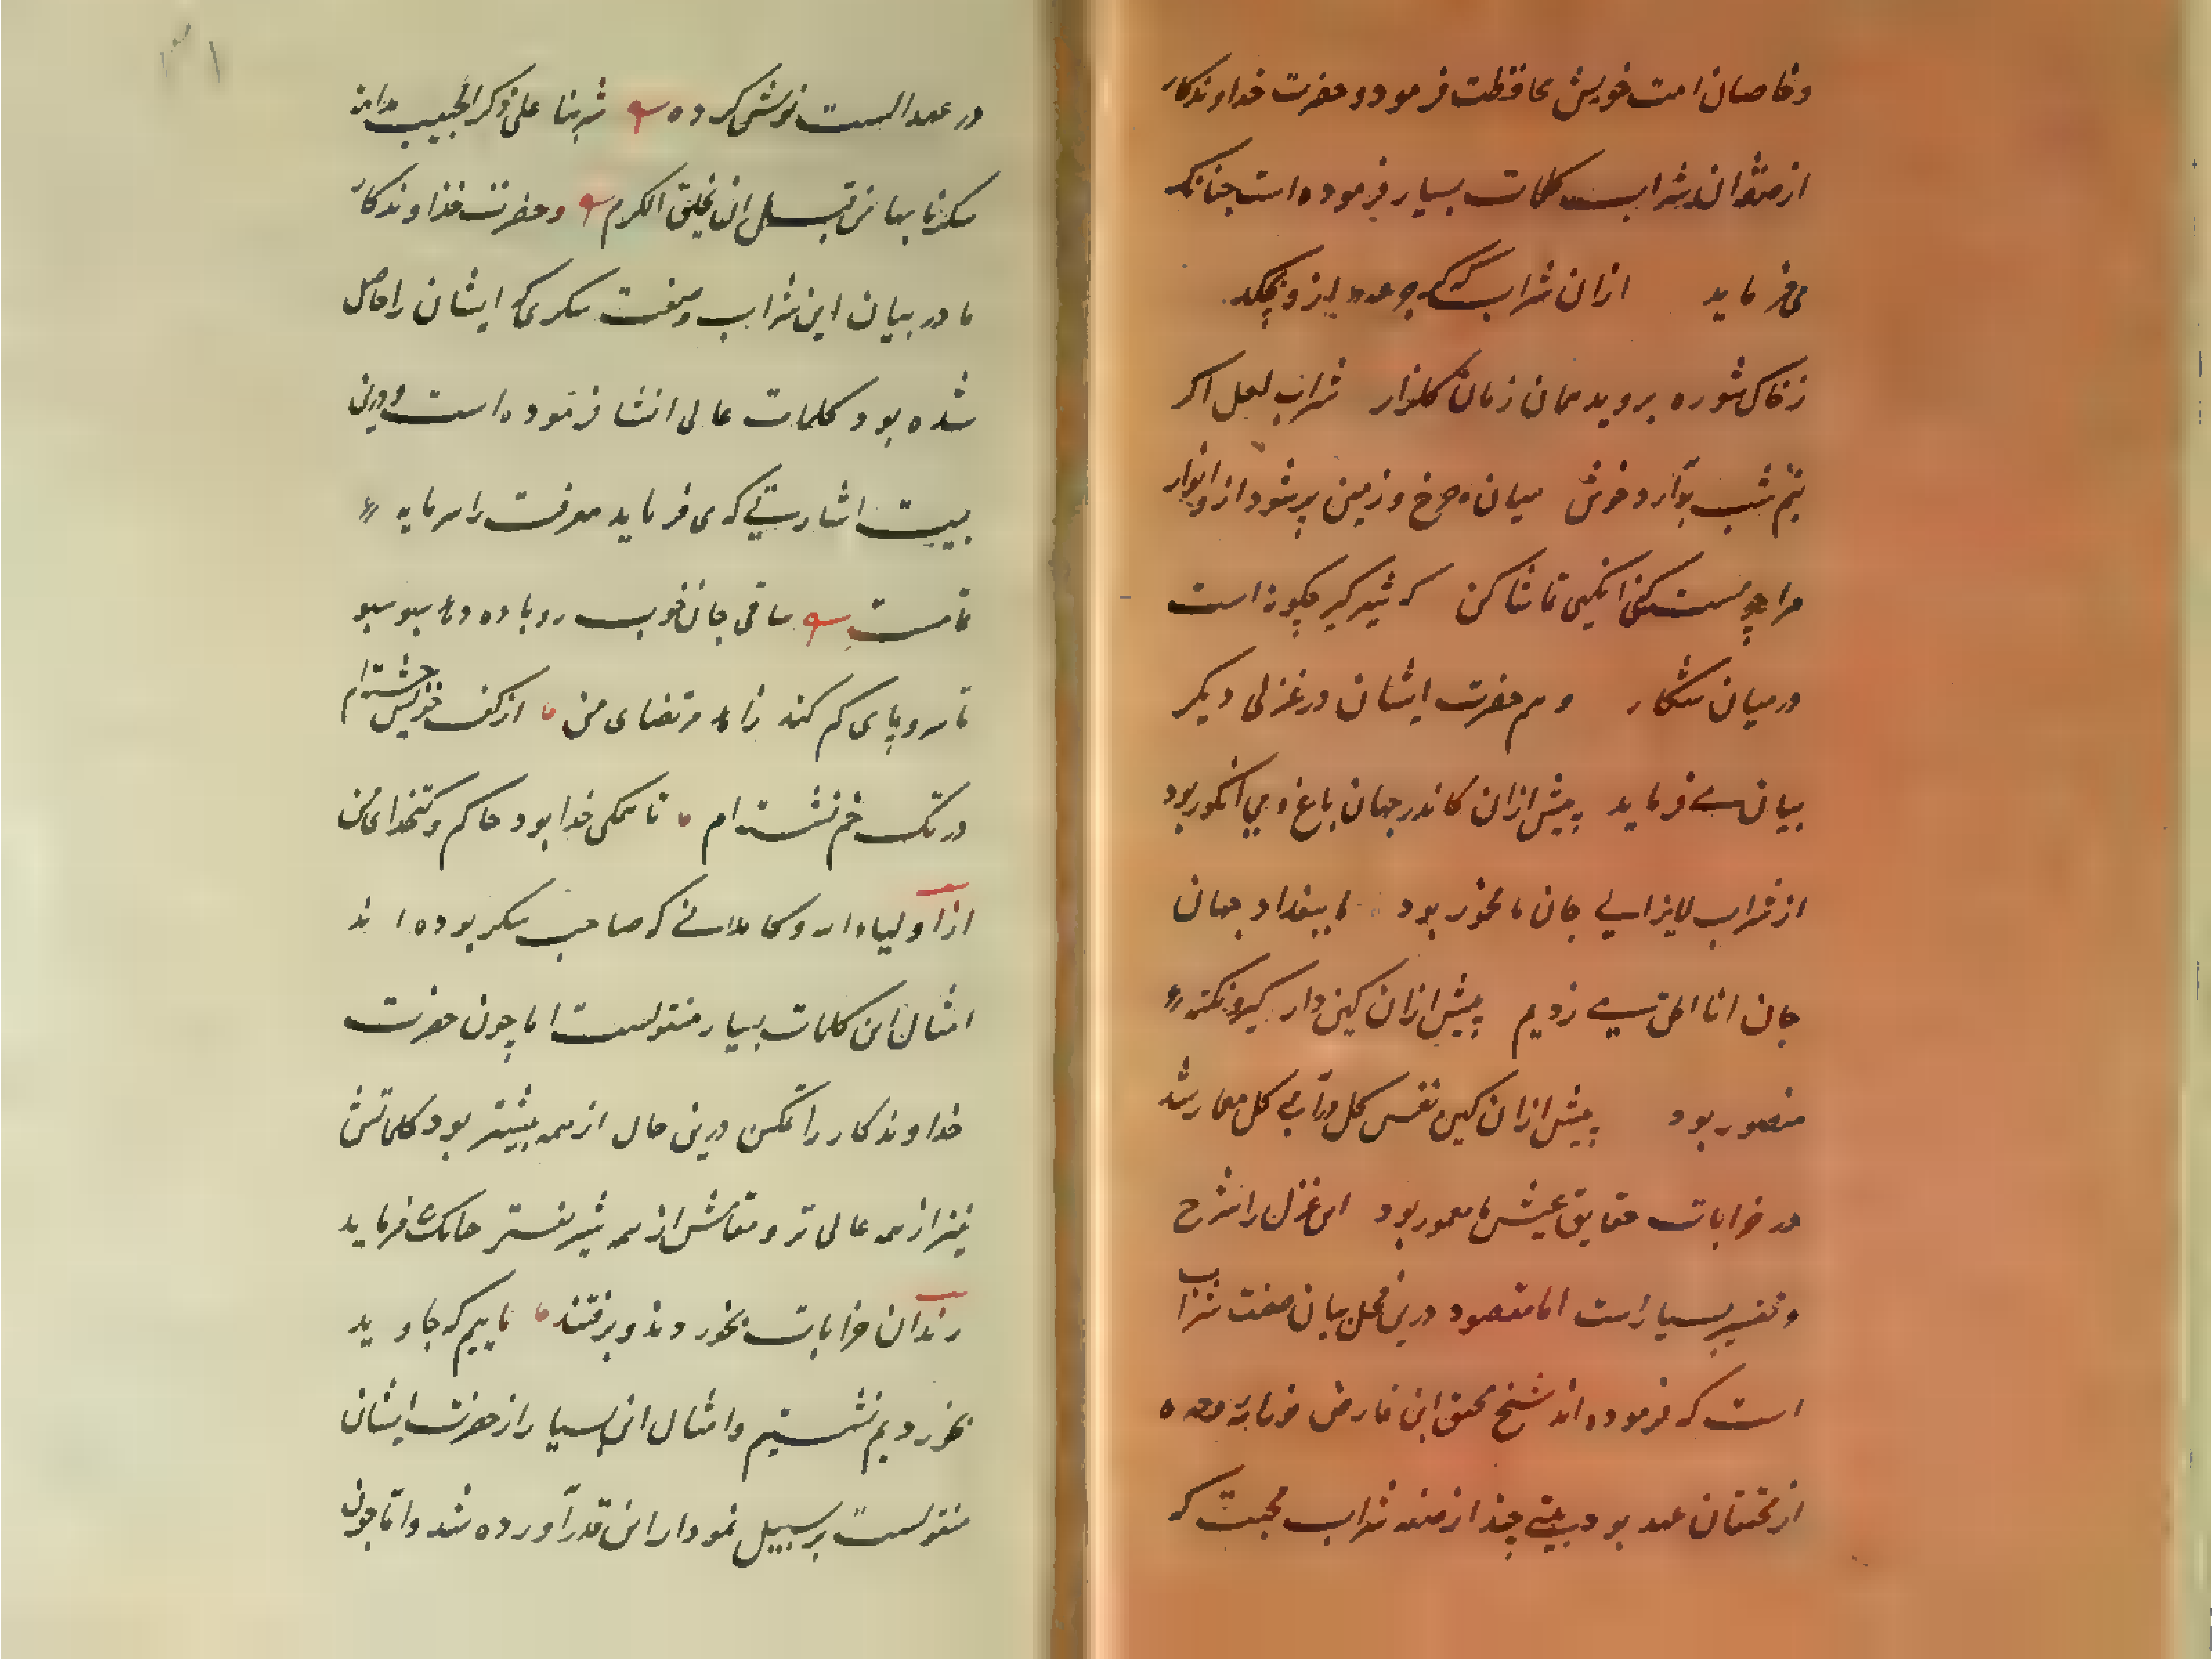 وخاصان امت خویش محافظت فرمود و حضرت خداوندکار
از صفوان شراب کلمات بسیار فرموده است چنانکه
می فرماید ازان شراب که کر جرعه ازو بچکد
زخاک شوره بروید همان زمان کلزار شراب لعل اکر
نیم شب برآرد خوش میان چرخ و زمین پر شود ازو انوار
مرا چو مست کنی انکهی تماشا کن که شیرکیر چکونه است
درمیان شکار و هم حضرت ایشان در غزلی دیکر
بیان می فرماید پیش ازان کاندر جهان باغ و می انکور بود
از شراب لایزالی جان ما مخمور بود ما ببغداد جهان
جان انا الحق می زدیم پیش ازان کین دار کیر و نکته
منصور بود پیش ازان کین نفس کل در آب و کل معمار شد
در خرابات حقایق عیش ما معمور بود این غزل را شرح
و تفسیر بسیار است اما مقصود درین محل بیان صفت شراب
است که فرموده اند شیخ محقق ابن فارض که
از محققان عهد بود بیتی چند از صفه شراب محبت که
۳۱
در عهد الست نوش کرده شربنا علی ذکر الحبیب مدامه
سکرنا بها من قبل ان یخلق الکرم و حضرت خداوندکار
ما در بیان این شراب وصفت سکری که ایشان را حاصل
شده بود کلمات عالی انشا فرموده است و درین
بیت اشارتی که می فرماید معرفت را سرمایه
تمامست ساقی جان خوب رو باده دهد سبو سبو
تا سر و پای کم کند زاهد مرتضای من از کف خویش جسته ام
در تک خم نشسته ام تا همکی خدا بود حاکم و کتخدای من
از اولیاء الله و کاملانی که صاحب سکر بوده اند
امثال این کلمات بسیار منقولست اما چون حضرت
خداوندکار را تمکین درین حال از همه بیشتر بود کلماتش
نیز از همه عالی تر و مقامش از همه شیرینتر چنانک فرماید
رندان خرابات بخوردند و برفتند ماییم که جاوید
بخوردیم نشستیم و امثال این بسیار از حضرت ایشان
منقولست بر سبیل نمودار این قدر آورده شد و اما چون